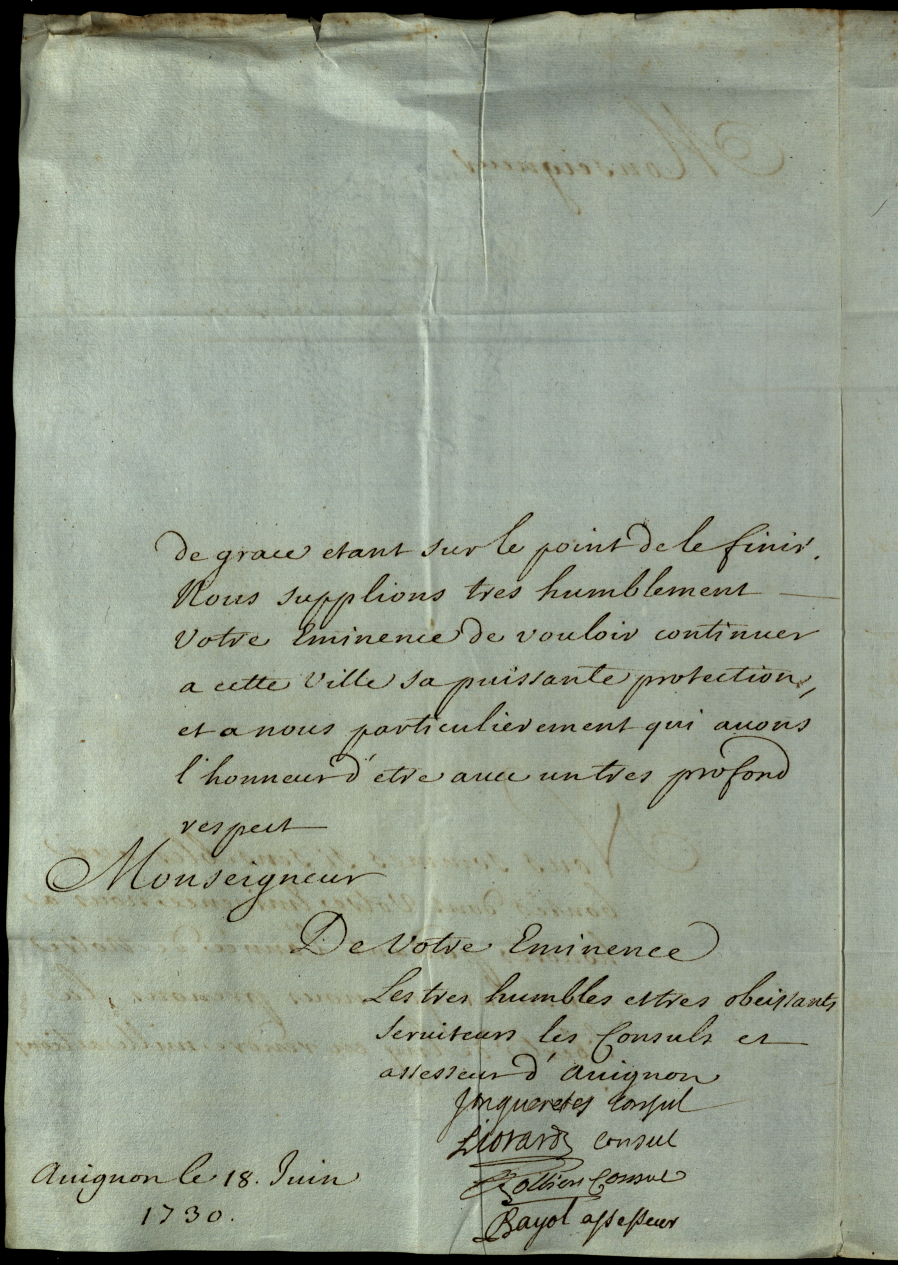 de grace etant sur le point de le finir.
Nous supplions tres humblement
Votre Eminence de vouloir continuer
a cette Ville sa puissante protection,
et a nous particulierement qui auons
l'honneur d'etre auec un tres profond
respect
Monseigneur
De Votre Eminence
Les tres humbles et tres obeissants
seruiteurs les Consuls et
assesseur d'Auignon
Jonqueretes Consul
Liotard consul
Consul
Bayol assesseur
Auignon le 18. Juin
1730.